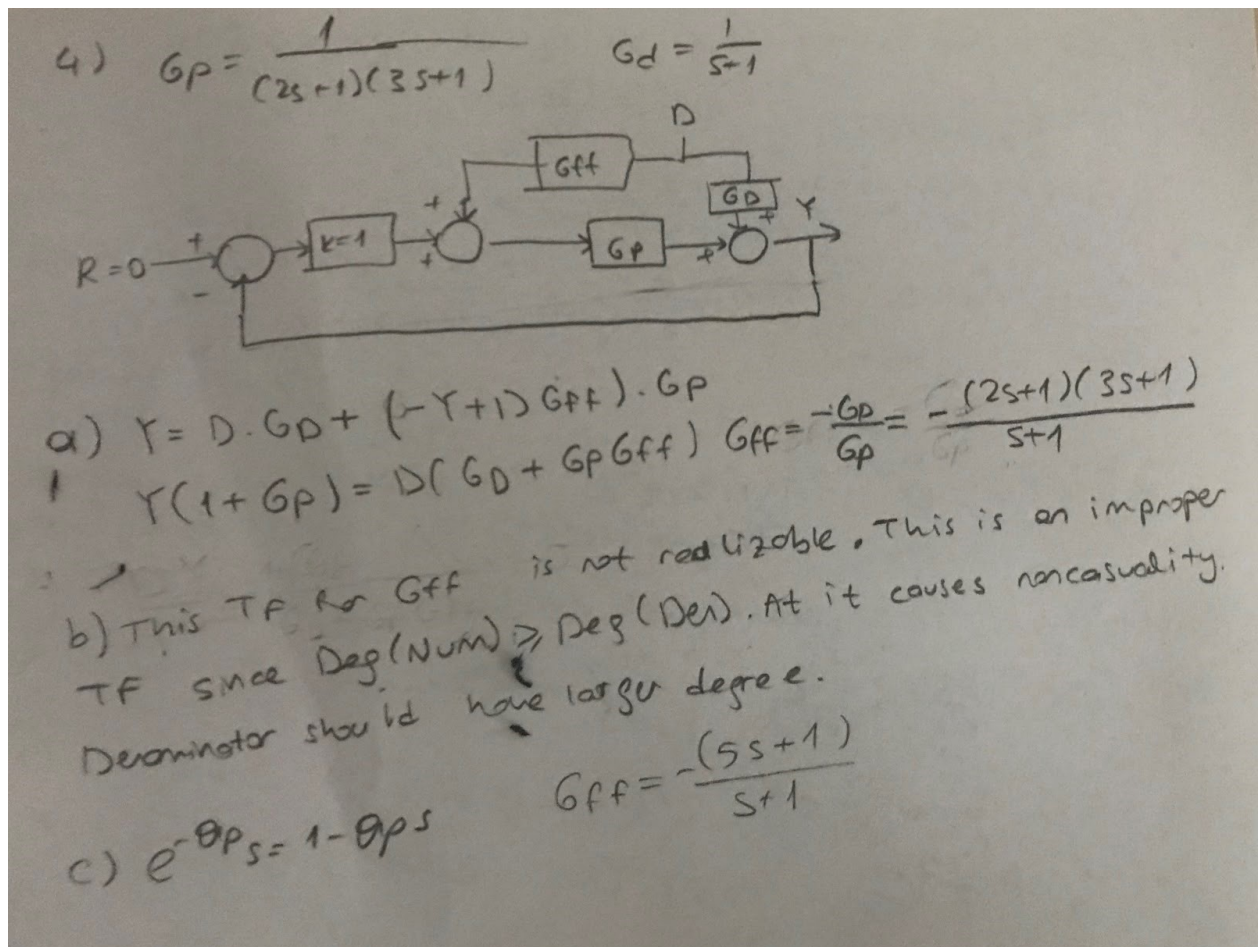 4) Gp = 1 / (2s+1)(3s+1) Gd = 1 / s+1
D
Gff
GD
Y
R=0 + - K=1 + + Gp + +
a) Y = D.GD + (-Y+D Gff).Gp
Y(1+Gp) = D(GD + GpGff) Gff = -GD / Gp = -(2s+1)(3s+1) / s+1
b) This TF for Gff is not realizable. This is an improper
TF since Deg(Num) ≥ Deg(Den). At it causes noncasuality.
Denominator should have larger degree.
Gff = -(5s+1) / s+1
c) e^-θps = 1-θps